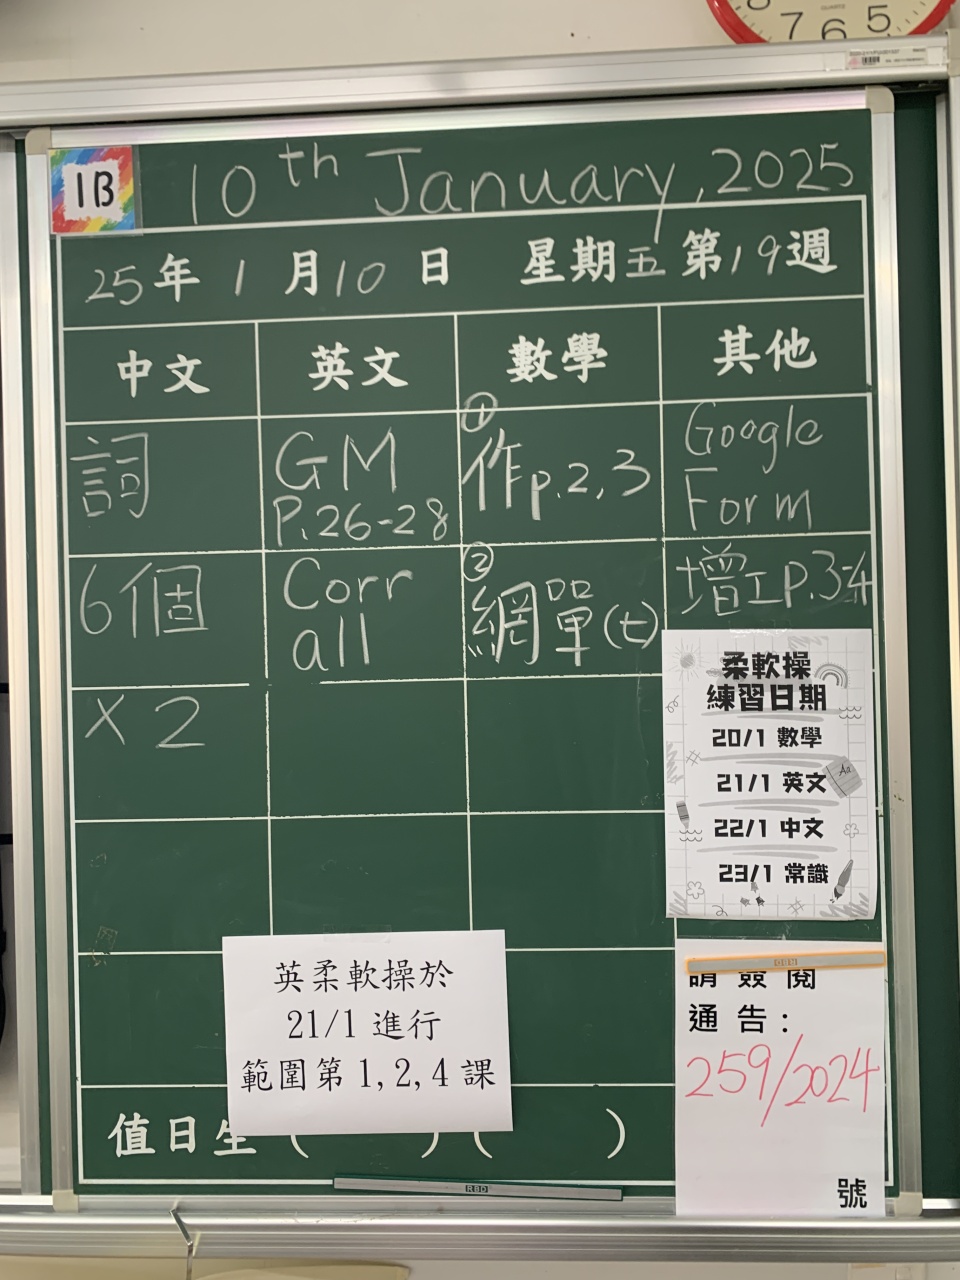 7 6 5
QUARTZ
1B
10th January, 2025
25年1月10日 星期五 第19週
中文 英文 數學 其他
詞
GM
P.26-28
①
作p.2,3
Google
Form
6個
Corr
all
②
網單(七)
增工p.3-4
×2
柔軟操
練習日期
20/1 數學
21/1 英文
22/1 中文
23/1 常識
Aa
英柔軟操於
21/1 進行
範圍第 1, 2, 4 課
請簽閱
通告:
259/2024
號
值日生 ( ) ( )